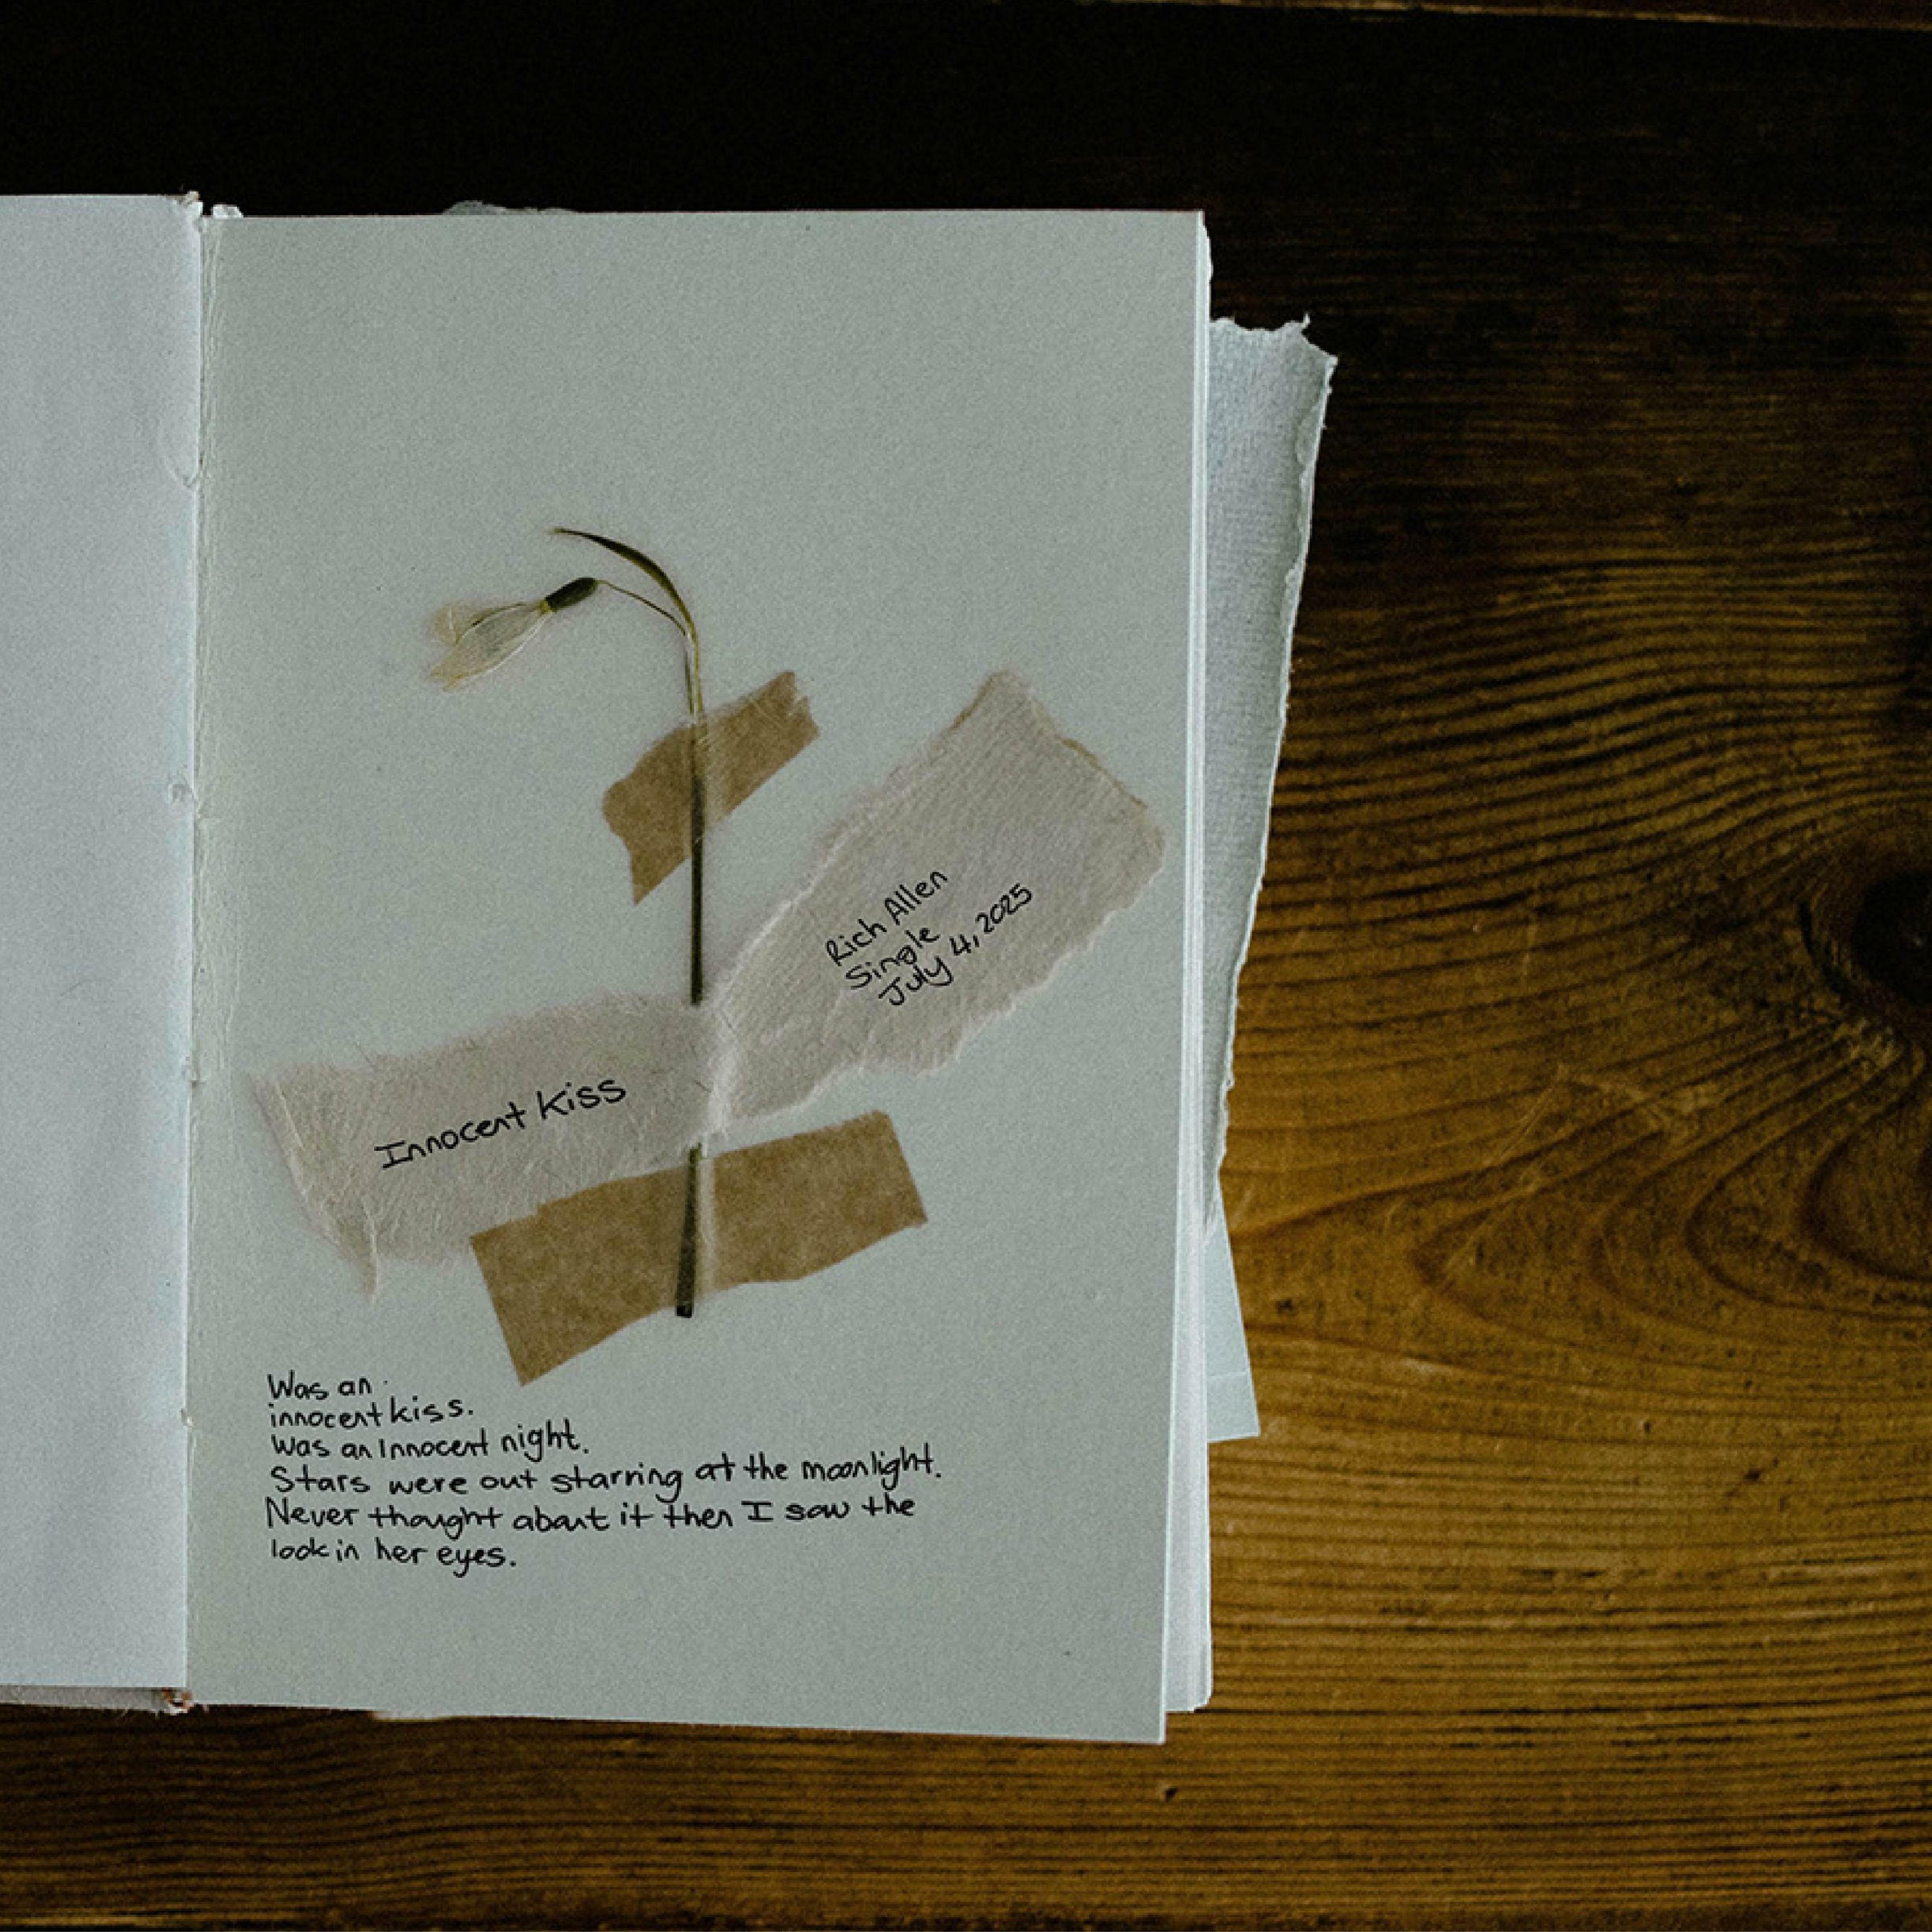 Rich Allen
Single
July 4, 2025
Innocent Kiss
Was an
innocent kiss.
Was an Innocent night.
Stars were out starring at the moonlight.
Never thought about it then I saw the
look in her eyes.